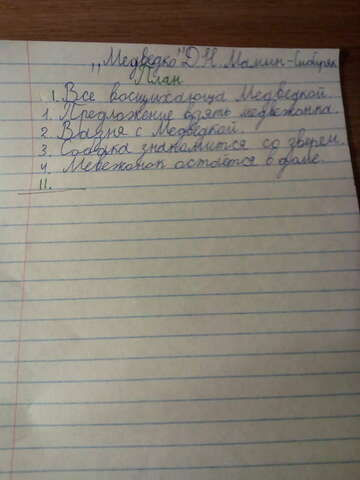 „Медведко" Д.Н. Мамин-Сибиряк
План
I. Все восхихающа Медведкой.
1. Предложение взять медвежонка.
2. Возня с Медведкой.
3. Собака знакомится со зверем.
4. Мевежонок остаётся в доме.
II.